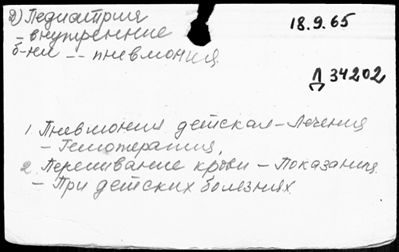 2) Педиатрия
18.9.65
– внутренние
б-ни -- пневмония
Д 34202
1. Пневмония детская – Лечение
– Гемотерапия.
2. Переливание крови – Показания
– При детских болезнях